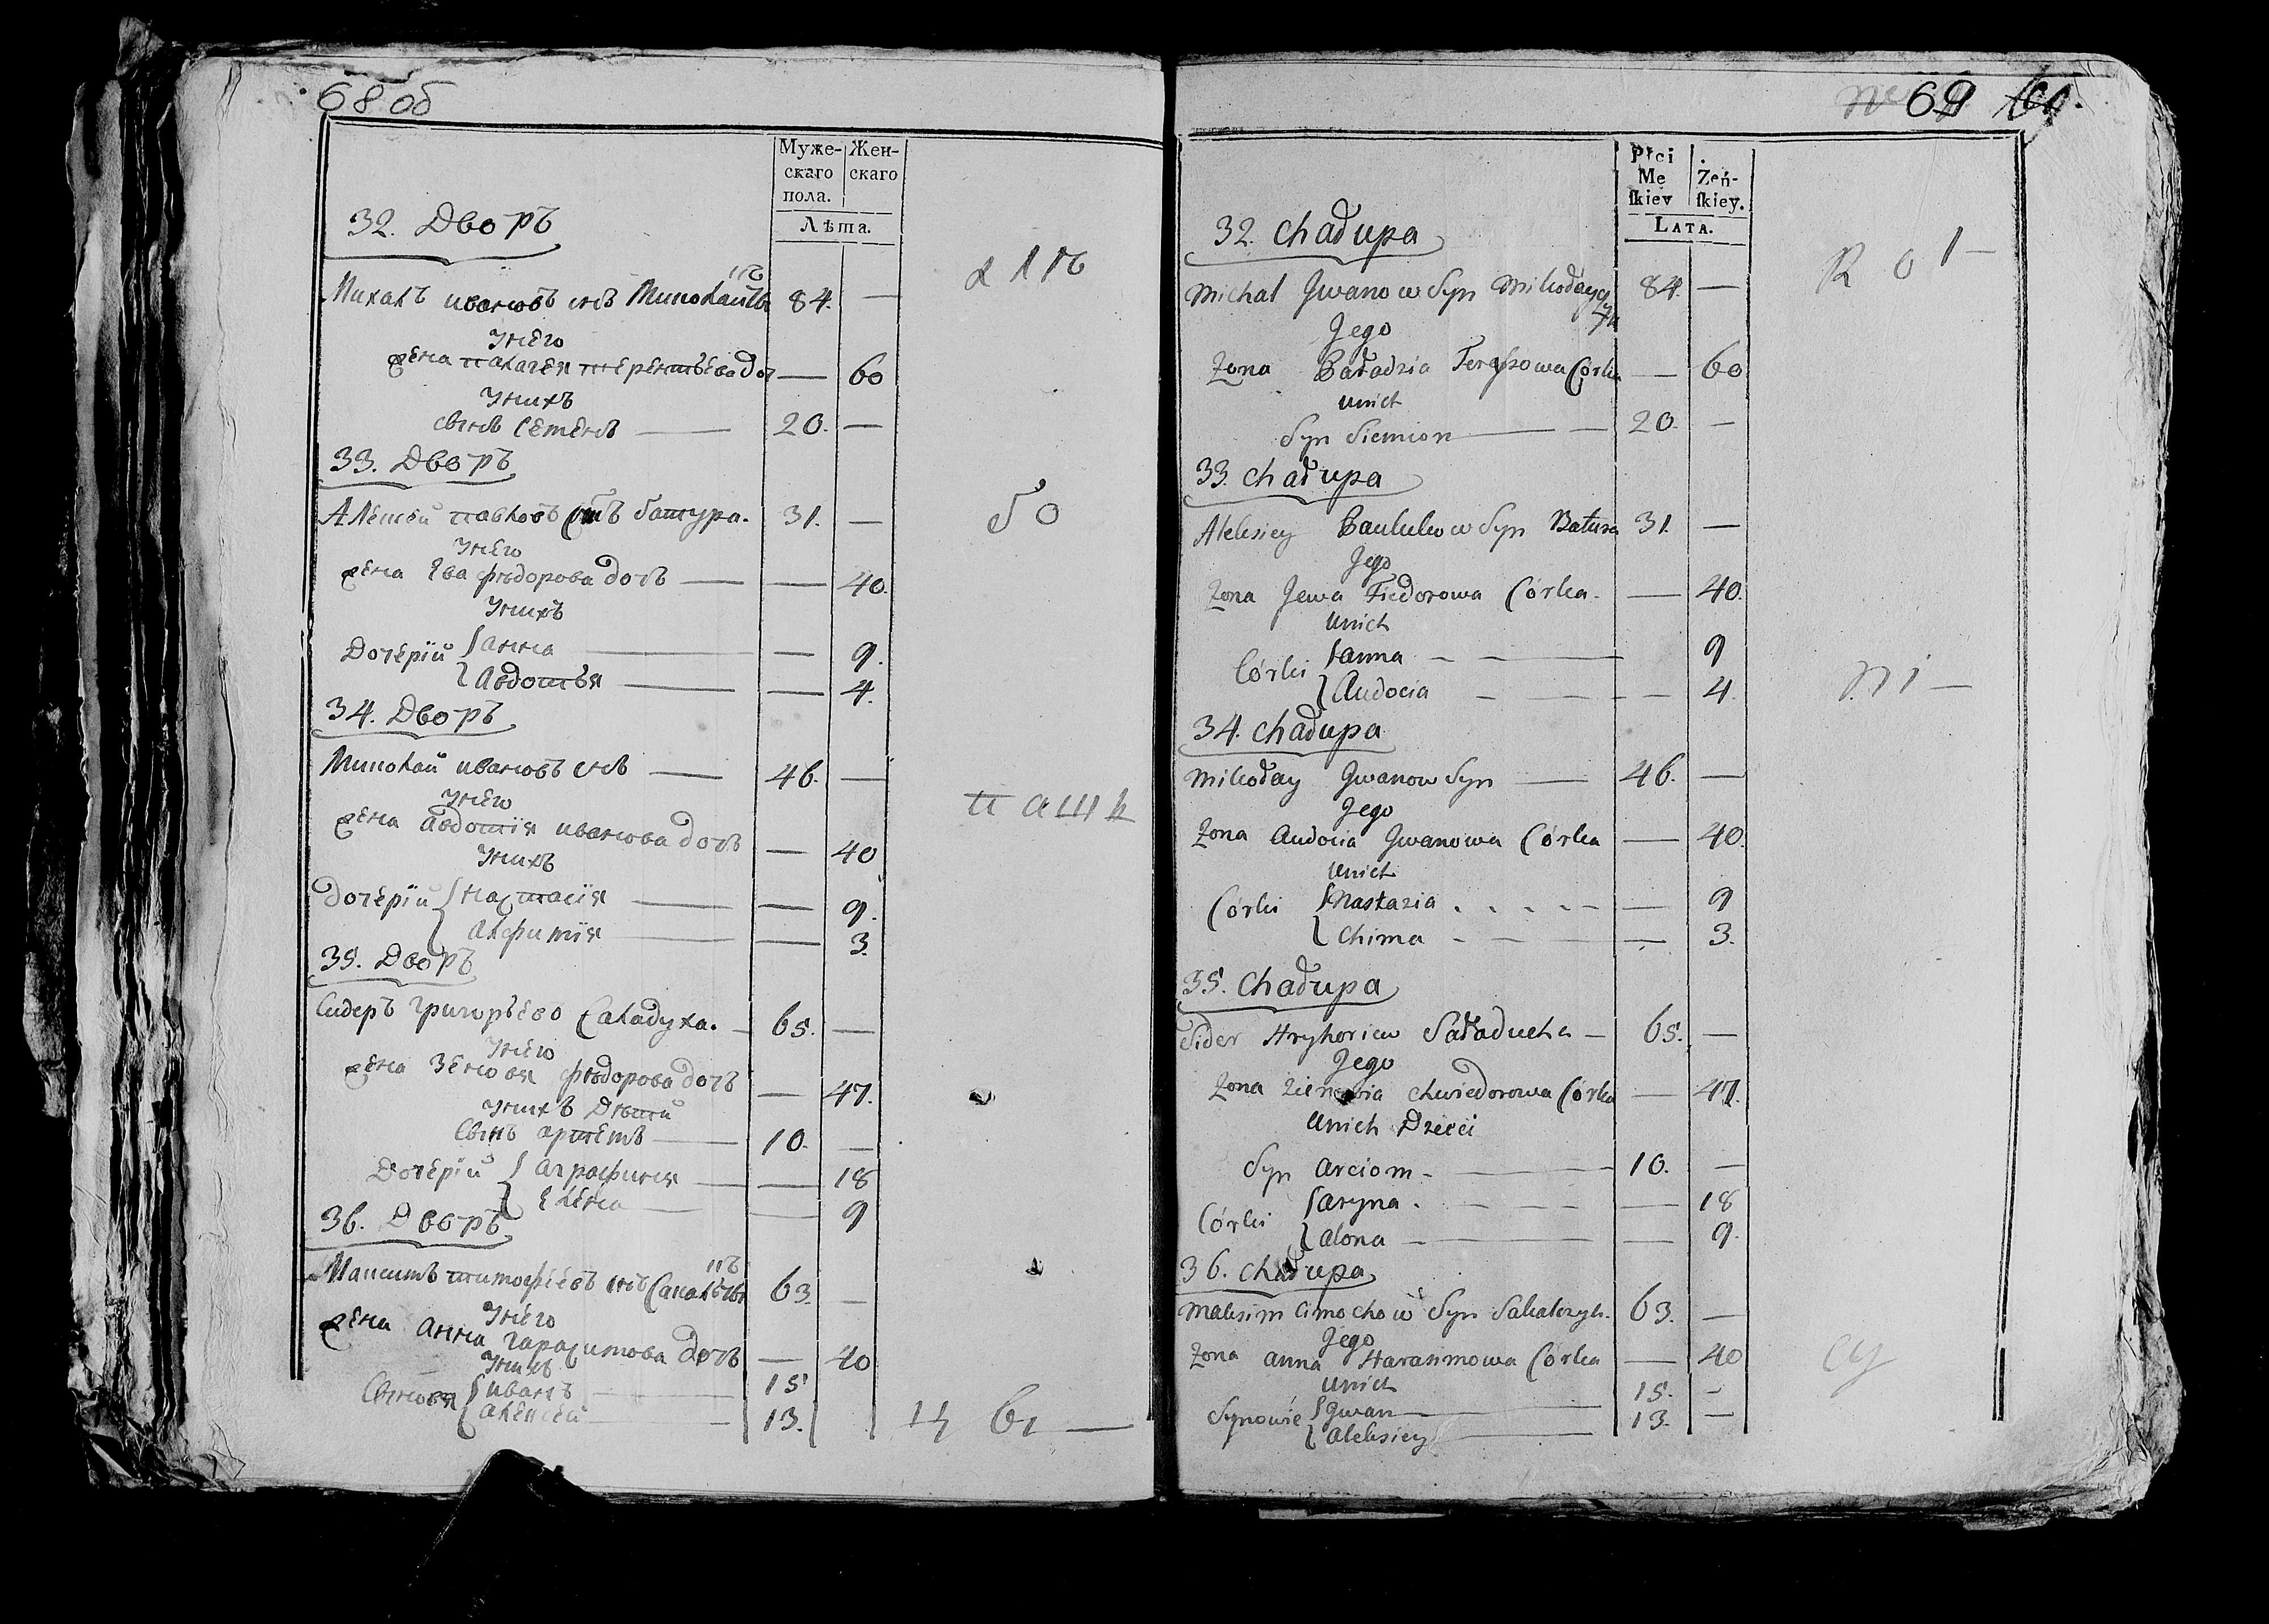 68 об
Муже-
скаго
пола.
Жен-
скаго
Лѣта.
32. Дворъ
Михалъ ивановъ снъ Миколай 84. —
Унего
жена палагея терентьева доч — 60
Унихъ
сынъ Семенъ — 20. —
33. Дворъ
Алексей павловъ снъ батура. 31. —
Унего
жена Ева федорова дочь — — 40.
Унихъ
Дочерїй анна — — 9.
Авдотья — — 4.
34. Дворъ
Миколай ивановъ снъ — 46. —
Унего
жена авдотїя иванова дочь — 40
Унихъ
Дочерїй настасїя — — 9.
— — 3.
35. Дворъ
Сидеръ григорьево Саладуха. — 65. —
Унего
жена Зеновя федорова дочь — 47.
Унихъ Дѣти
Сынъ артемъ — 10. —
Дочерїй аграфиня — — 18
Елена — — 9
36. Дворъ
Максимъ тимофїевъ снъ 63. —
Унего
жена Анна гарасимова дочь — 40
Унихъ
Сыновя иванъ — 15
алексей — 13.
69
Płci
Mę
ſkiey
Zeń-
ſkiey.
LATA.
32. Chałupa
Michał Jwanow Syn 84. —
Jego
Zona Paładzia Córka — 60
unich
Syn Siemion — — 20. —
33. Chałupa
Aleksiey Paulukow Syn Batura 31. —
Jego
Zona Jewa Fiedorowa Córka. — 40.
unich
Córki anna — — 9
Audocia — — — 4.
34. Chałupa
Mikołay Jwanow Syn — 46. —
Jego
Zona Audocia Jwanowa Córka — 40.
unich
Córki Nastazia . . . . — — 9
Chima — — — 3.
35. Chałupa
Sider Hryhoriew Saładucha — 65. —
Jego
Zona Zienobia Chwiedorowa Córka — 47.
unich Dzieci
Syn Arciom — — 10. —
Córki aryna . — — — 18
alona — — 9.
36. Chałupa
Maksim Cimochow Syn 63. —
Jego
Zona anna Harasimowa Córka — 40
unich
Synowie Jwan — 15. —
aleksiey — 13. —